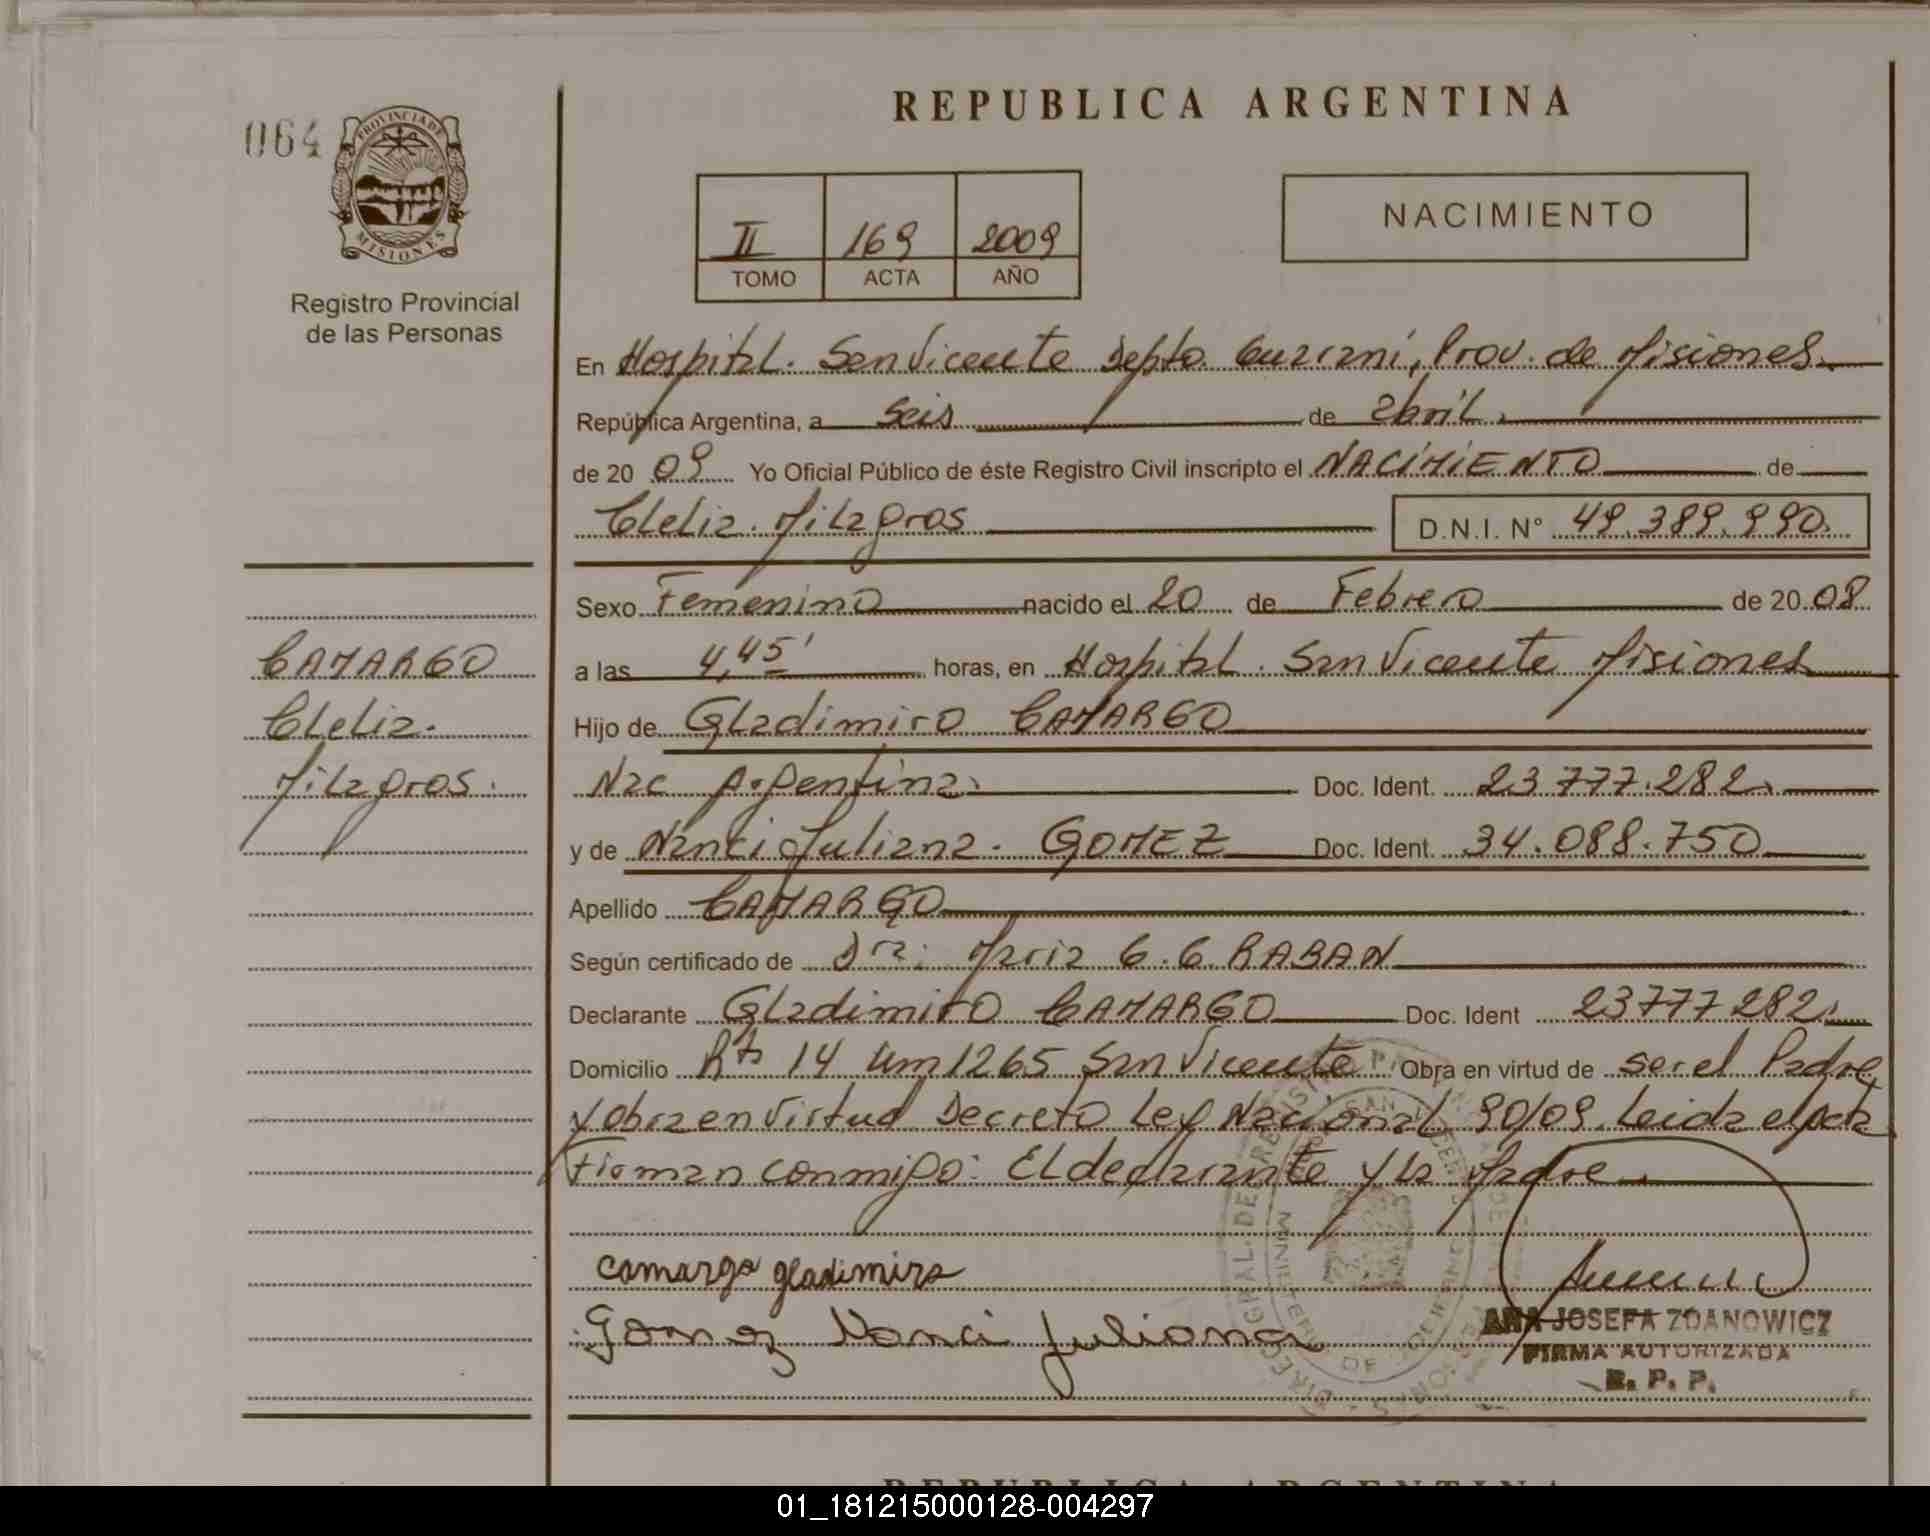 REPUBLICA ARGENTINA
064
PROVINCIA DE
MISIONES
Registro Provincial
de las Personas
II 169 2009
TOMO ACTA AÑO
NACIMIENTO
En Hospital. San Vicente Depto. Guarani, Prov. de Misiones.
República Argentina, a Seis de abril.
de 20 09 Yo Oficial Público de éste Registro Civil inscripto el NACIMIENTO de
Clelia. Milagros D.N.I. N° 49.389.990.
Sexo Femenino nacido el 20 de Febrero de 20 08
a las 4,45' horas, en Hospital. San Vicente Misiones
Hijo de Gladimiro CAMARGO
Nac Argentina. Doc. Ident. 23 777.282.
y de Nanci Juliana. GOMEZ Doc. Ident. 34.088.750
Apellido CAMARGO
Según certificado de Dra: Maria G.G. RABAN
Declarante Gladimiro CAMARGO Doc. Ident 23777 282.
Domicilio Rta 14 Km 1265 San Vicente Obra en virtud de ser el Padre
y obra en Virtud Decreto Ley Nacional 90/09. Leida el acta
Firman conmigo: El declarante y la Madre.
CAMARGO
Clelia.
Milagros.
camargo gladimiro
Gomez Nanci Juliana
ANA JOSEFA ZDANOWICZ
FIRMA AUTORIZADA
R. P. P.
REPUBLICA ARGENTINA
01_181215000128-004297